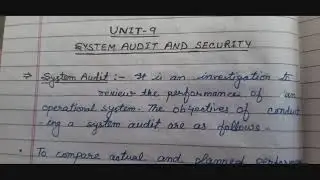 UNIT-9
SYSTEM AUDIT AND SECURITY
⇒ System Audit :- It is an investigation to
review the performances of an
operational system. The objectives of conduct
-ing a system audit are as follows -
• To compare actual and planned